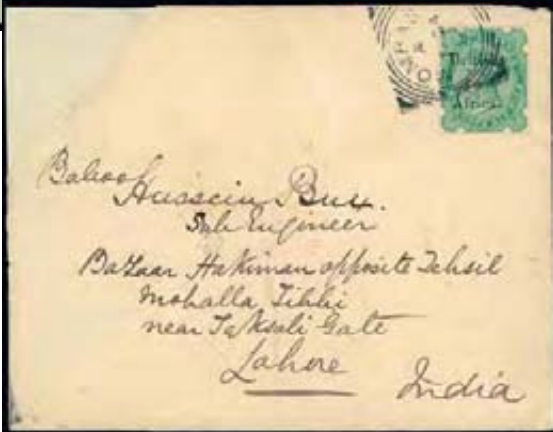 British
Africa
Baboo
Hussein Bux.
Sub Engineer
Bazaar Hakiman opposite Tehsil
Mohalla Tibbi
near Taksali Gate
Lahore
India